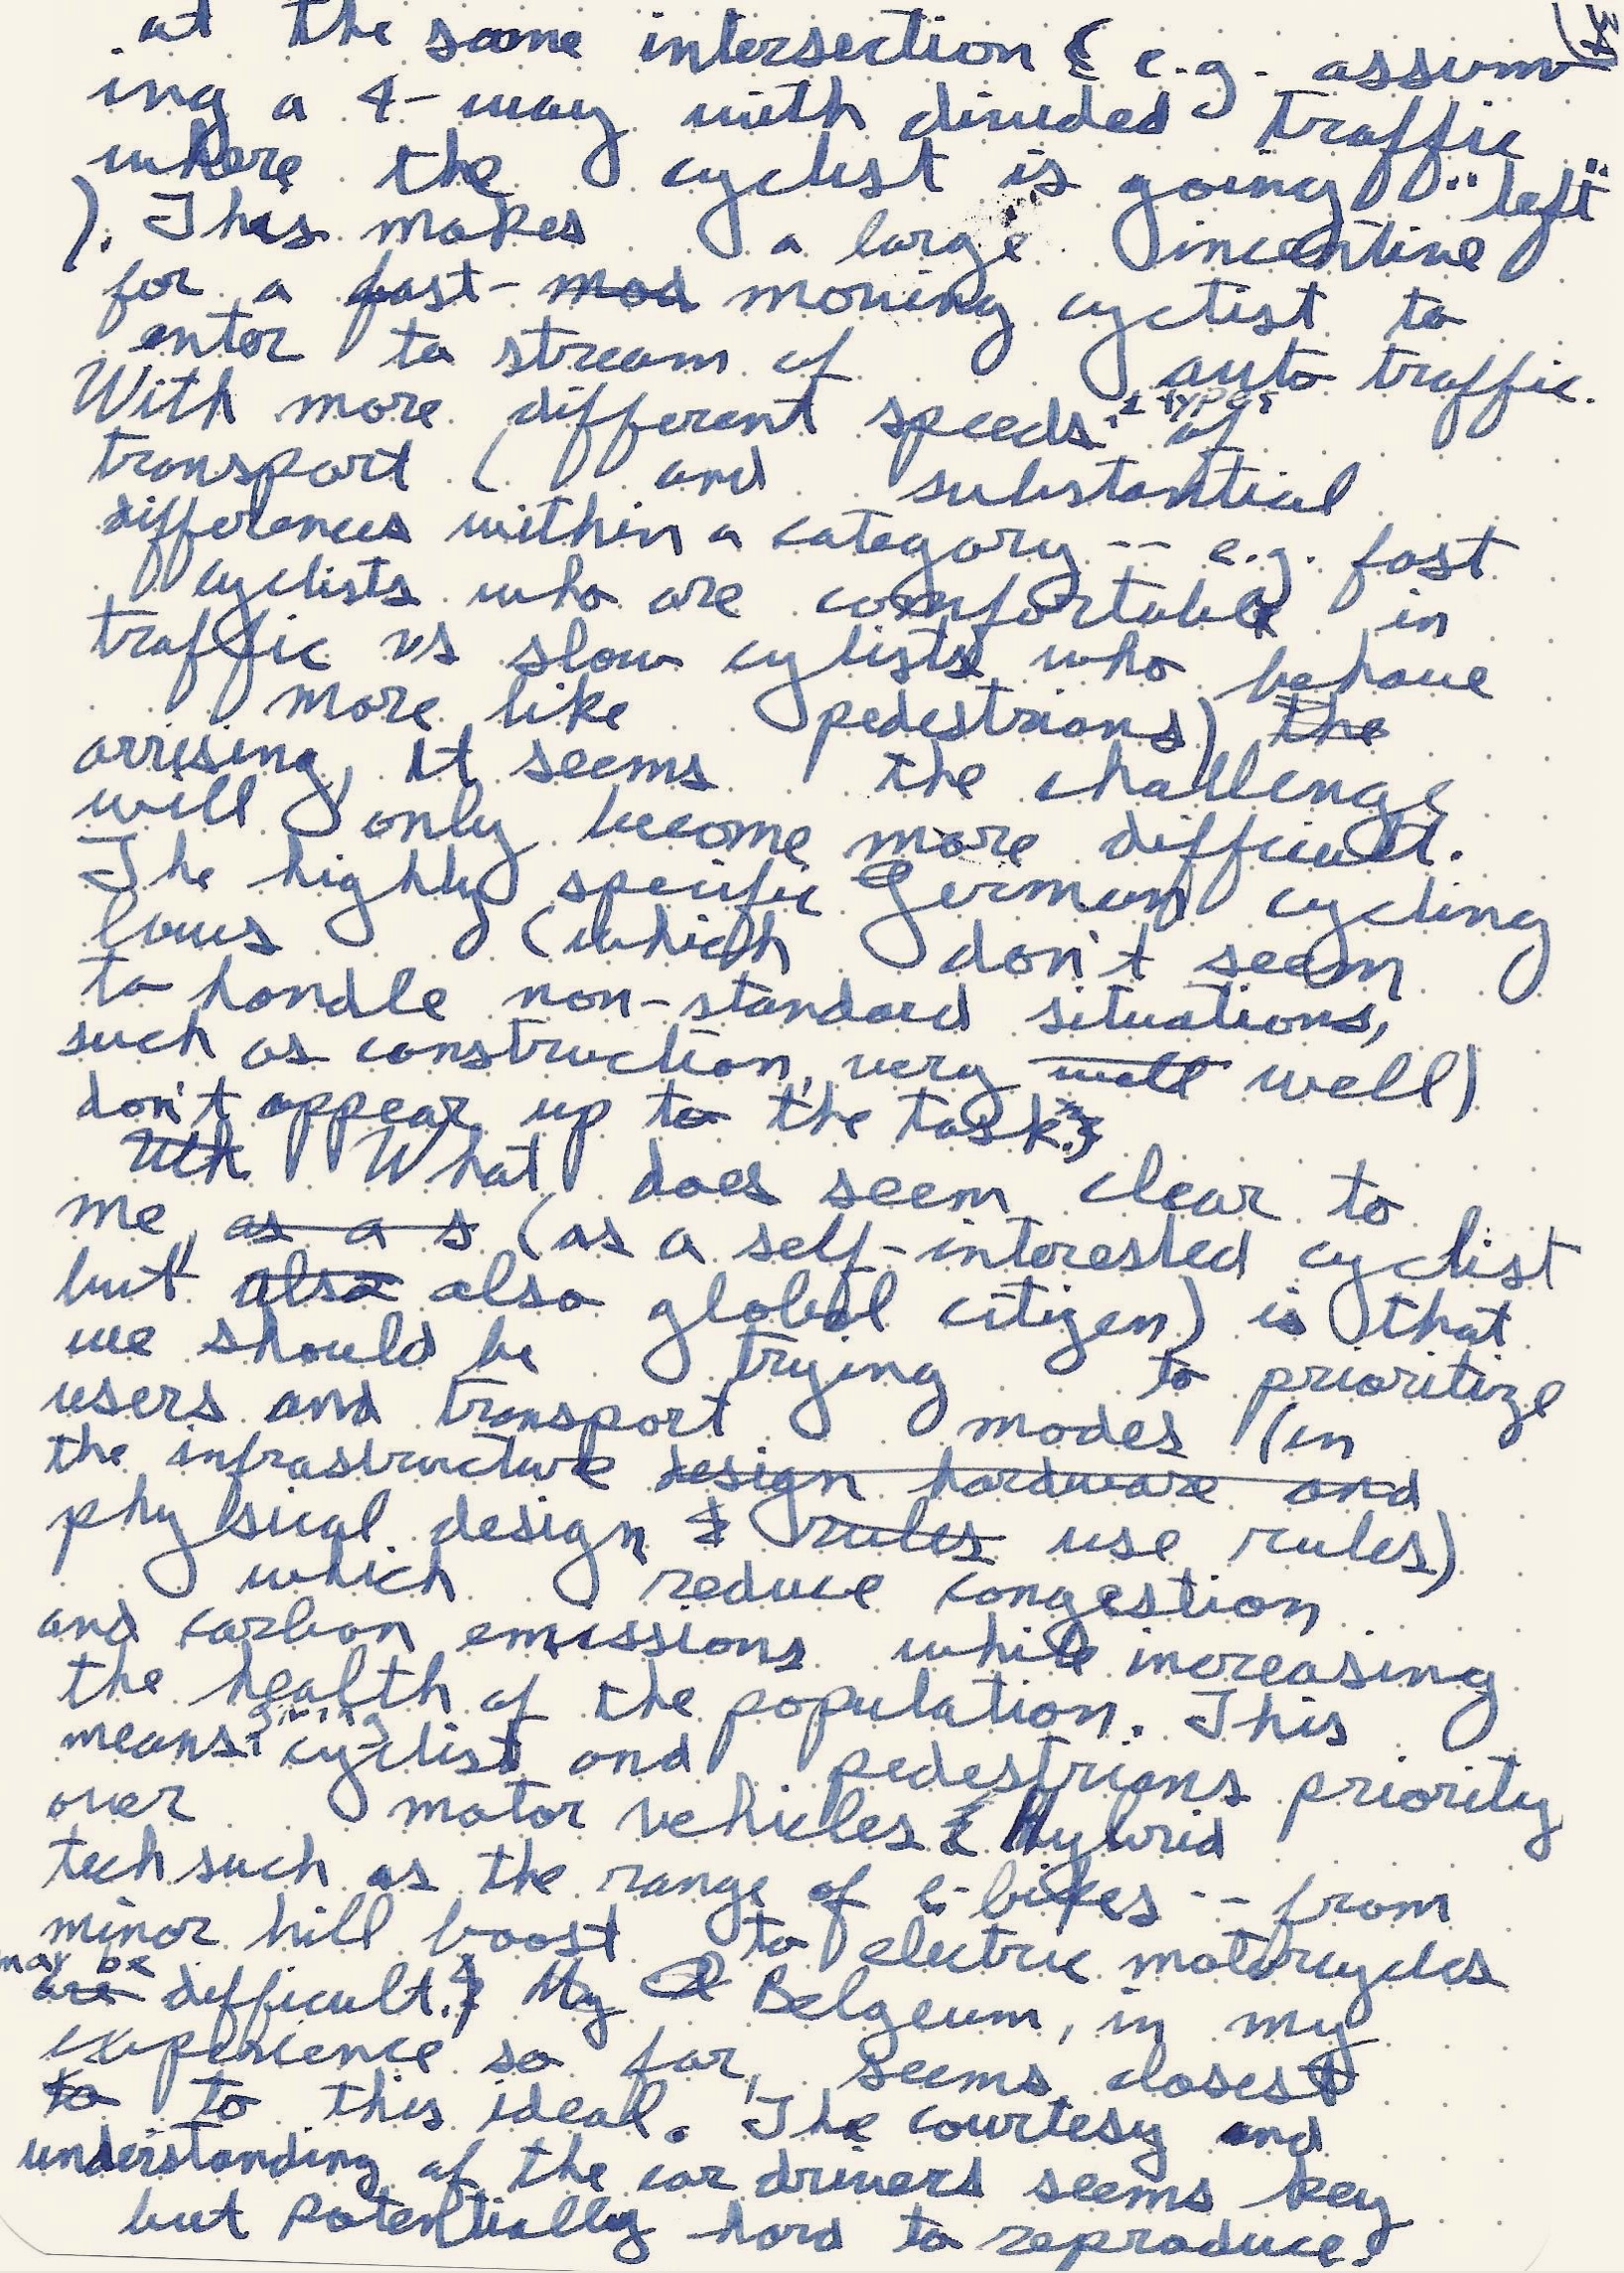 at the same intersection ( e.g. assum-
ing a 4-way with divided traffic
where the cyclist is going "left"
). This makes a large incentive
for a fast-mod moving cyclist to
enter to stream of auto traffic.
With more different speeds & types of
transport ( and substantial
differences within a category -- e.g. fast
cyclists who are comfortable in
traffic vs slow cylists who behave
more like pedestrians) the
arrising, it seems the challenge
will only become more difficult.
The highly specific German cycling
laws (which don't seem
to handle non-standard situations,
such as construction, very well well)
don't appear up to the task.
What does seem clear to
me, as a s (as a self-interested cyclist
but also also global citizen) is that
we should be trying to prioritize
users and transport modes (in
the infrastructure design hardware and
physical design & rules use rules)
which reduce congestion
and carbon emissions while increasing
the health of the population. This
means giving cyclist and pedestrians priority
over motor vehicles. Hybrid
tech such as the range of e-bikes -- from
minor hill boost to electric motorcycles
may be
are difficult. My Belgeum, in my
experience so far, seems closest
to to this ideal. The courtesy and
understanding of the car drivers seems key
but potentially hard to reproduce.